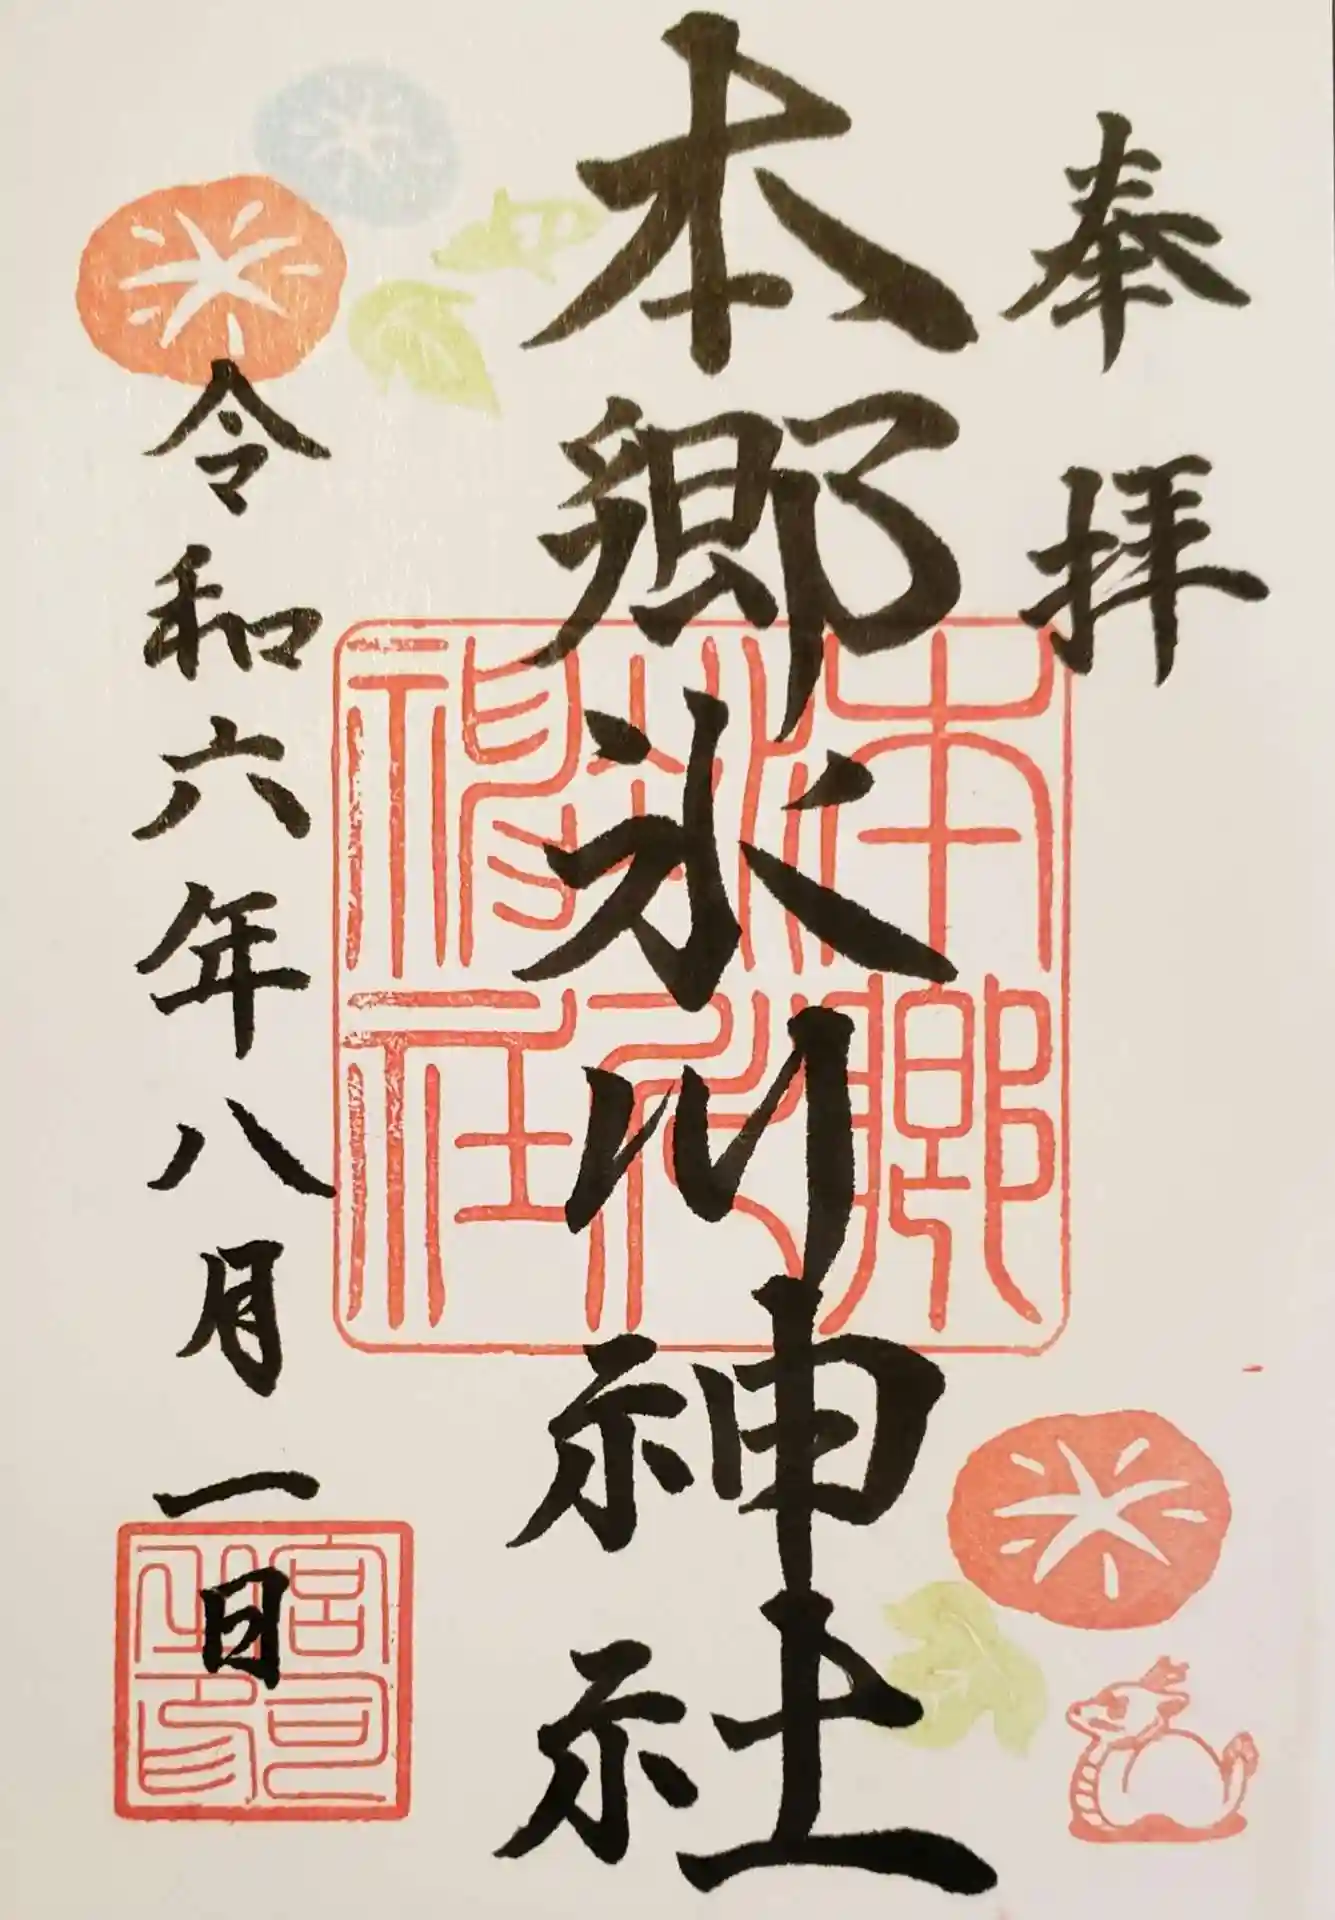 奉拝
本郷氷川神社
本郷氷川神社
令和六年八月一日
宮司之印